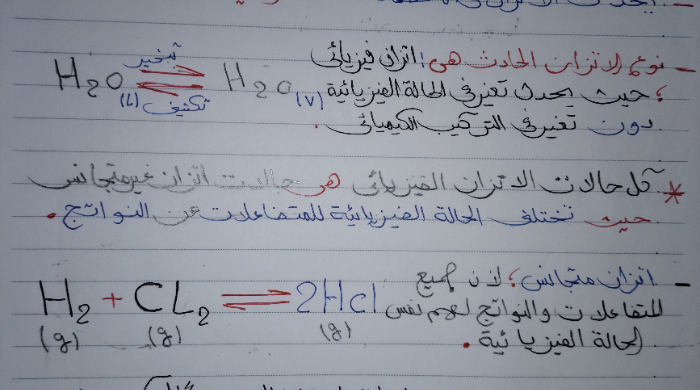 – نوع الاتزان الحادث هى؛ اتزان فيزيائى
؛ حيث يحدث تغير فى الحالة الفيزيائية
دون تغير فى التركيب الكيميائى .
H2O (L) ⇌ H2O (V)
تبخير
تكثيف
* كل حالات الاتزان الفيزيائى هى حالات اتزان غير متجانس
حيث تختلف الحالة الفيزيائية للمتفاعلات عن النواتج .
– اتزان متجانس؛ لان جميع
المتفاعلات والنواتج لهم نفس
الحالة الفيزيائية .
H2 + CL2 ⇌ 2Hcl
(g) (g) (g)